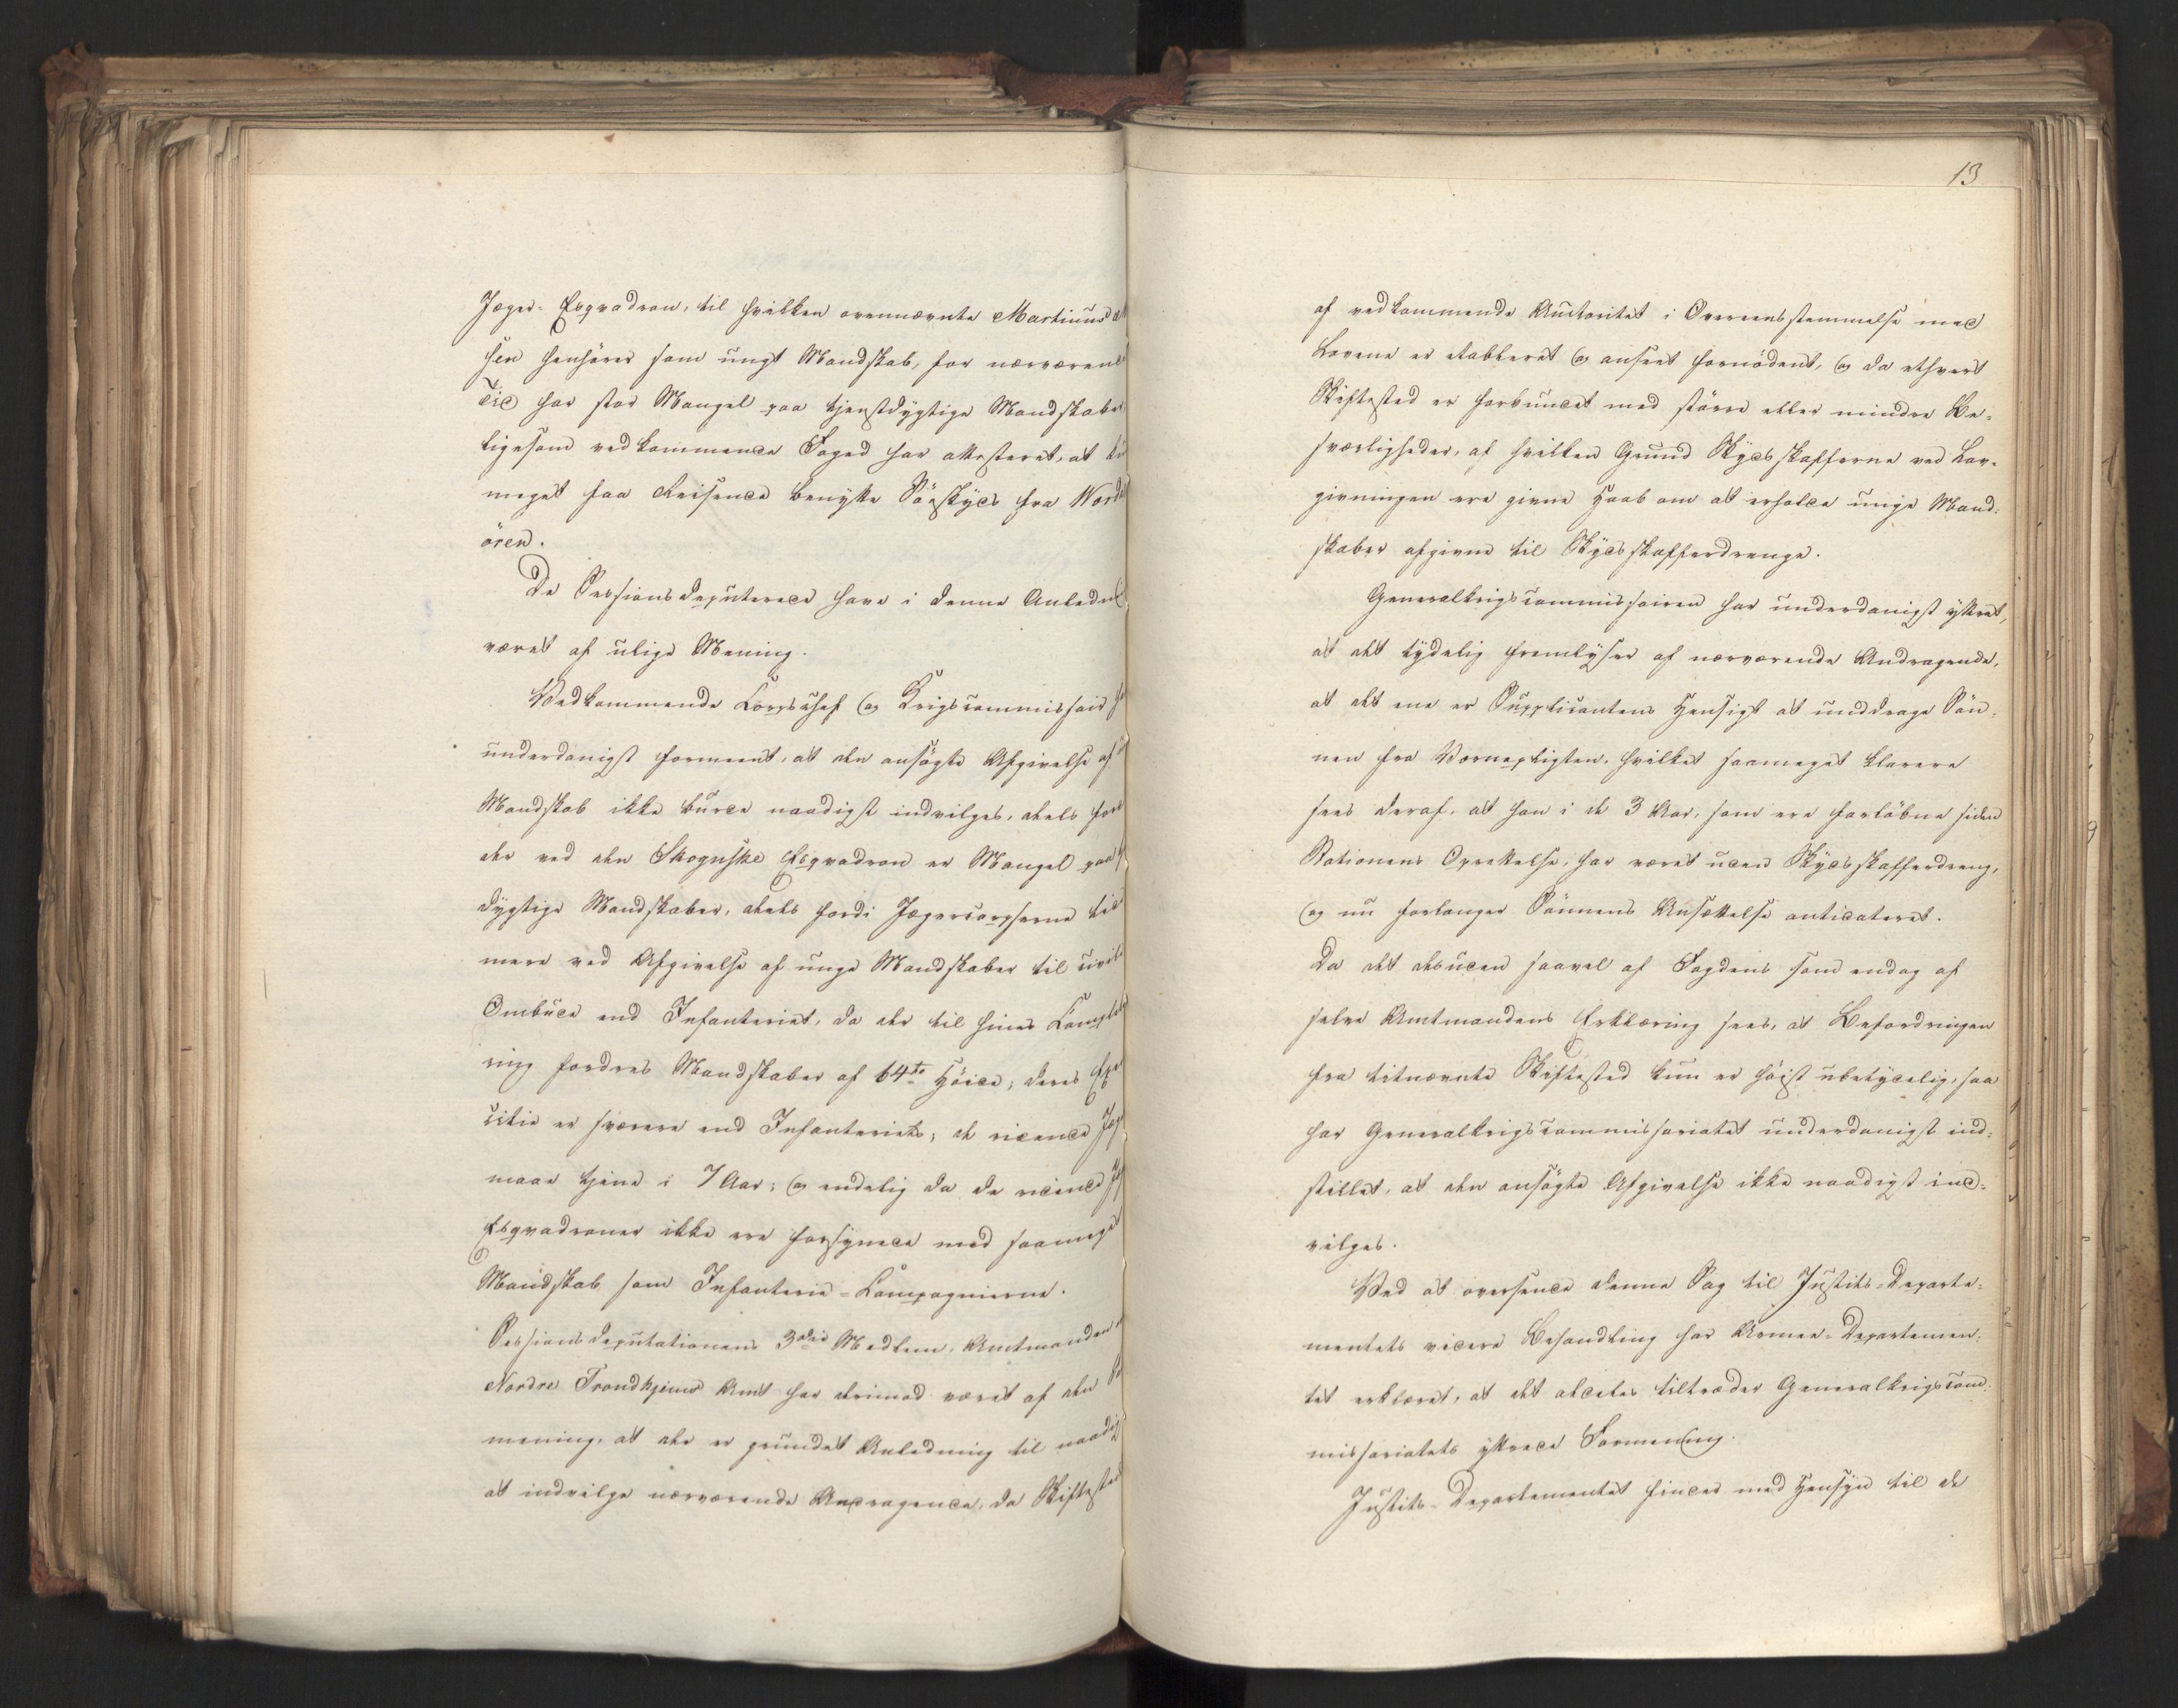 Jæger-Esqvadron, til hvilken ovennævnte Martinus
sen henhører som ungt Mandskab, for nærværende
Tid har stor Mangel paa tjenstdygtige Mandskaber
ligesom vedkommende Foged har attesteret, at kun
meget faa Reisende benytte Söeskyds fra Værdal
ören.
De Sessionsdeputerede have i denne Anledni
været af ulige Mening.
Vedkommende Corpschef og Krigscommissair
underdanigst formeent, at den ansøgte Afgivelse af
Mandskab ikke burde naadigst indvilges, deels fordi
der ved den Skognske Esqvadron er Mangel paa
dygtige Mandskaber, deels fordi Jægercorpserne lide
mere ved Afgivelse af unge Mandskaber til civile
Ombude end Infanteriet, da der til hines Complet
ring fordres Mandskaber af 64 to Höide; deres Exer
citie er sværere end Infanteriets; de ridende Jæg
maae tjene i 7 Aar; og endelig da de ridende Jæg
Esqvadroner ikke ere forsynede med saameget
Mandskab som Infanterie-Compagnierne.
Sessionsdeputationens 3die Medlem, Amtmanden
Nordre Trondhjems Amt har derimod været af den
mening, at der er grundet Anledning til naadig
at indvilge nærværende Andragende, da Skiftested
13
af vedkommende Auctoritet i Overeensstemmelse med
Lovene er etableret og anseet fornödent, og da ethvert
Skiftested er forbundet med större eller mindre Be-
sværligheder, af hvilken Grund Skydsskafferne ved Lov-
givningen ere givne Haab om at erholde unge Mand-
skaber afgivne til Skydsskafferdrenge.
Generalkrigscommissairen har underdanigst yttret,
at det tydelig fremlyser af nærværende Andragende,
at det ene er Supplicantens Hensigt at unddrage Sön-
nen fra Værnepligten, hvilket saameget klarere
sees deraf, at han i de 3 Aar, som ere forlöbne siden
Stationens Oprettelse, har været uden Skydsskafferdreng,
og nu forlanger Sönnens Ansættelse antidateret.
Da det desuden saavel af Fogdens som endog af
selve Amtmandens Erklæring sees, at Befordringen
fra bemeldte Skiftested kun er höist ubetydelig, saa
har Generalkrigscommissariatet underdanigst ind-
stillet, at den ansögte Afgivelse ikke naadigst ind-
vilges.
Ved at oversende denne Sag til Justits-Departe-
mentets videre Behandling har Armee-Departemen-
tet erklæret, at det aldeles tiltræder Generalkrigscom-
missariatets yttrede Formening.
Justits-Departementet finder med Hensyn til de